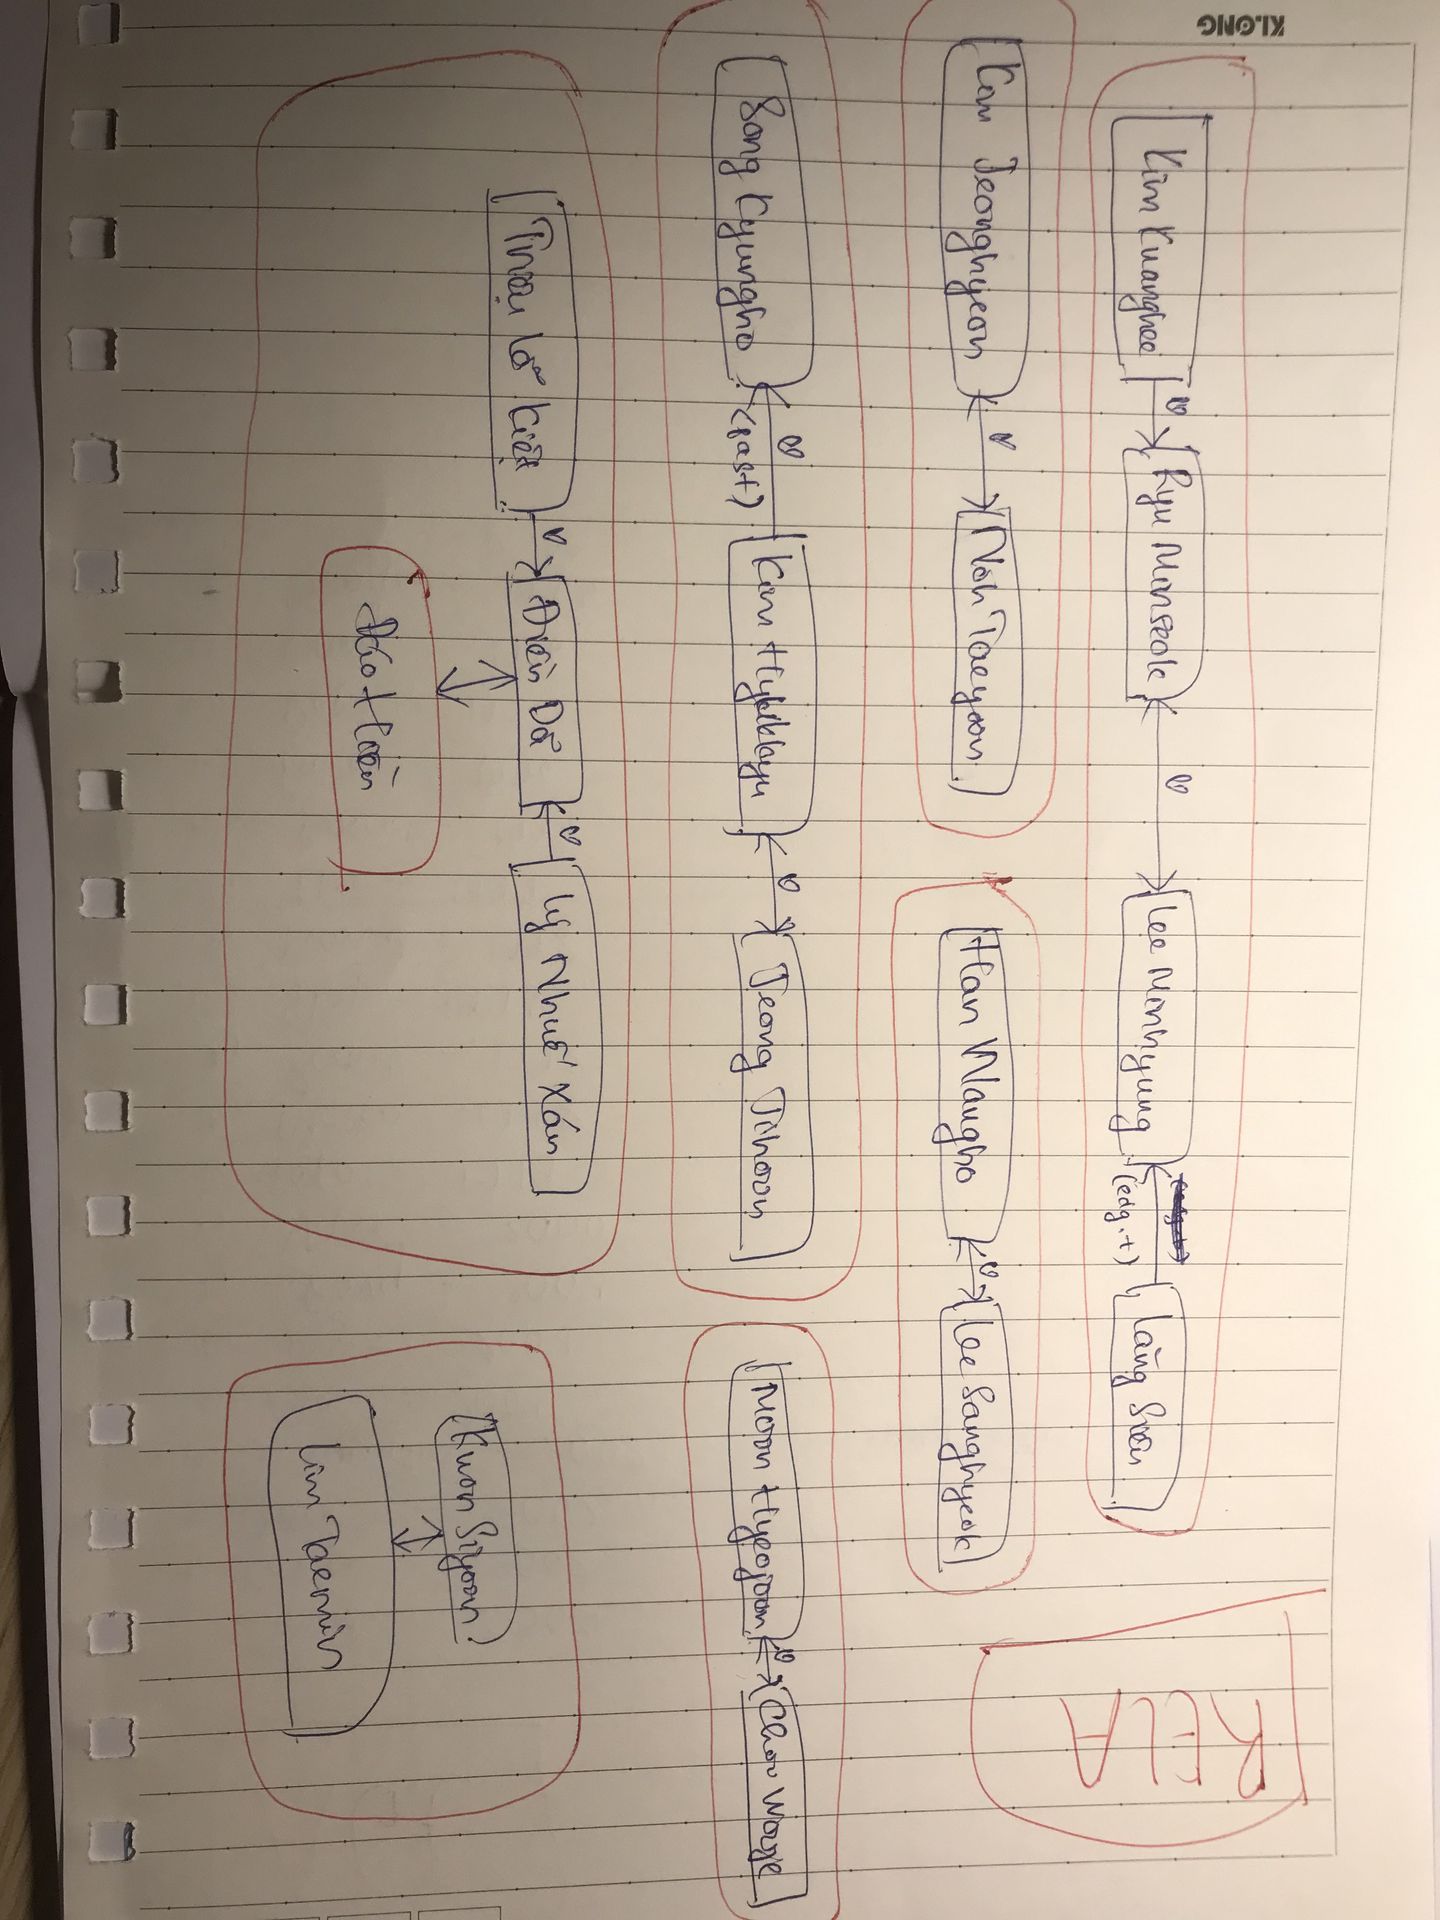 KLONG
Kim Kuanghee
Ryu Minseok
Lee Minhyung
(edg, +)
Lãng Siên
Kim Jeonghyeon
Noh Taeyoon
Han Wangho
Lee Sanghyeok
RELA
Song Kyungho
(past)
Jeong Jihoon
Moon Hyeojoon
Choi Wooje
Triệu Lễ Kiệt
Điền Dã
Lý Nhuế Xán
Kwon Siyoon
Lim Taemin